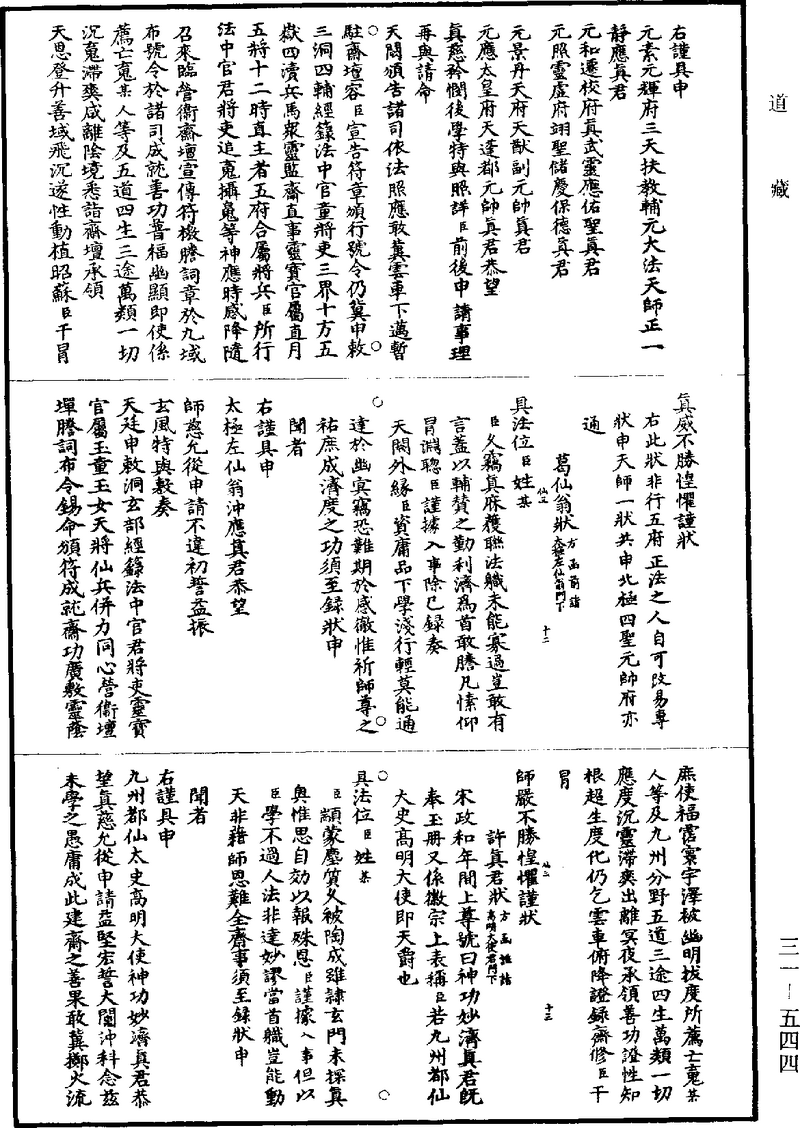 道藏
右謹具申
元素元輝府三天扶教輔元大法天師正一
靜應真君
元和遷校府真武靈應佑聖真君
元照靈虛府翊聖儲慶保德真君
元景丹天府天猷副元帥真君
元應太皇府天蓬都元帥真君恭望
真慈矜憫後學特與照詳臣前後申請事理
再與請命
天閽頒告諸司依法照應敢冀雲車下邁暫
駐齋壇容臣宣告符章頒行號令仍冀申敕
三洞四輔經籙法中官童將吏三界十方五
嶽四瀆兵馬衆靈監齋直事靈寶官屬直月
五將十二時直主者五府合屬將兵臣所行
法中官君將吏追寃攝寃等神應時感降隨
召來臨營衛齋壇宣傳符檄謄詞章於九域
布號令於諸司成就善功普福幽顯即使係
薦亡寃某人等及五道四生三途萬類一切
沉寃滯爽咸離陰境悉詣齋壇承領
天恩登升善域飛沉遂性動植昭蘇臣干冒
真威不勝惶懼謹狀
右此狀非行五府正法之人自可改易專
狀申天師一狀共申北極四聖元帥府亦
通
葛仙翁狀方函前諸太極左仙翁門下
十二
具法位臣姓某
臣久竊真庥獲聯法職未能寡過豈敢有
言蓋以輔贊之勤利濟爲首敢謄凡愫仰
冒淵聰臣謹據入事除已錄奏
天闕外緣臣資庸品下學淺行輕莫能通
達於幽冥竊恐難期於感徹惟祈師尊之
祐庶成濟度之功須至錄狀申
聞者
右謹具申
太極左仙翁沖應真君恭望
師慈允從申請不違初誓益振
玄風特與敷奏
天廷申敕洞玄部經籙法中官君將吏靈寶
官屬玉童玉女天將仙兵併力同心營衛壇
墠謄詞布令錫命頒符成就齋功廣敷靈蔭
庶使福霑寰宇澤被幽明拔度所薦亡寃某
人等及九州分野五道三途四生萬類一切
應度沉靈滯爽出離冥夜承領善功證性知
根超生度化仍乞雲車俯降證錄齋修臣干
冒
師嚴不勝惶懼謹狀
許真君狀方函雅諸高明大使君門下
十三
宋政和年間上尊號曰神功妙濟真君旣
奉玉冊又係徽宗上表稱臣若九州都仙
太史高明大使即天爵也
具法位臣姓某
臣顓蒙塵質久被陶成雖隷玄門未探真
奧惟思自効以報殊恩臣謹據入事但以
臣學不過人法非達妙謬當首職豈能動
天非藉師恩難全齋事須至錄狀申
聞者
右謹具申
九州都仙太史高明大使神功妙濟真君恭
望真慈允從申請益堅宏誓大闡沖科念茲
末學之愚庸成此建齋之善果敢冀擲火流
三一—五四四